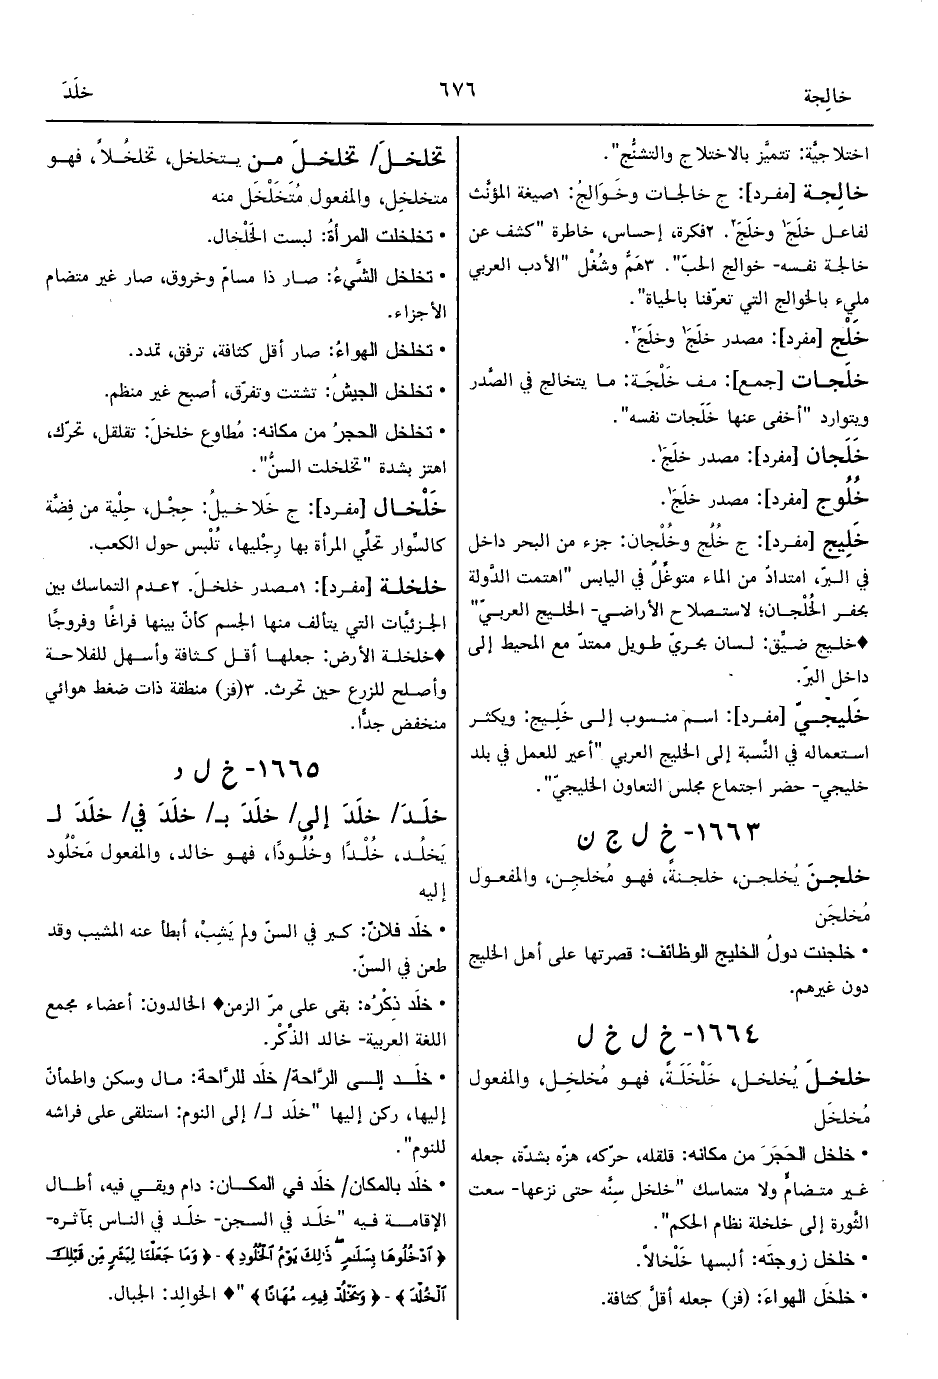 خالِجة
٦٧٦
خلَدَ
اختلاجيَّة: تتميَّز بالاختلاج والتشنُّج".
خالِجة [مفرد]: ج خالجات وخَوَالجُ: ١صيغة المؤنَّث
لفاعل خلَجَ١ وخلَجَ٢. ٢فكرة، إحساس، خاطرة "كشف عن
خالجة نفسه- خوالج الحبّ". ٣همٌّ وشُغل "الأدب العربي
مليء بالخوالج التي تعرّفنا بالحياة".
خَلْج [مفرد]: مصدر خلَجَ١ وخلَجَ٢.
خَلَجات [جمع]: مف خَلْجَة: ما يتخالج في الصَّدر
ويتوارد "أخفى عنها خَلَجات نفسه".
خَلَجان [مفرد]: مصدر خلَجَ١.
خُلُوج [مفرد]: مصدر خلَجَ١.
خَلِيج [مفرد]: ج خُلُج وخُلْجان: جزء من البحر داخل
في البرّ، امتدادٌ من الماء متوغِّلٌ في اليابس "اهتمت الدَّولة
بحفر الخُلْجان؛ لاستصلاح الأراضي- الخليج العربيّ"
♦خليج ضيِّق: لسان بحريّ طويل ممتدّ مع المحيط إلى
داخل البرّ.
خَليجيّ [مفرد]: اسم منسوب إلى خَلِيج: ويكثر
استعماله في النِّسبة إلى الخليج العربي "أعير للعمل في بلد
خليجي- حضر اجتماع مجلس التعاون الخليجيّ".
١٦٦٣- خ ل ج ن
خلجنَ يُخلجن، خلجنةً، فهو مُخلجِن، والمفعول
مُخلجَن
• خلجنت دولُ الخليج الوظائف: قصرتها على أهل الخليج
دون غيرهم.
١٦٦٤- خ ل خ ل
خلخلَ يُخلخل، خَلْخَلَةً، فهو مُخلخِل، والمفعول
مُخلخَل
• خلخل الحَجَرَ من مكانه: قلقله، حرّكه، هزّه بشدّة، جعله
غير متضامٍّ ولا متماسك "خلخل سِنَّه حتى نزعها- سعت
الثورة إلى خلخلة نظام الحكم".
• خلخل زوجتَه: ألبسها خَلْخالاً.
• خلخَل الهواءَ: (فز) جعله أقلَّ كثافة.
تخلخلَ/ تخلخلَ من يتخلخل، تخلخُلاً، فهو
متخلخِل، والمفعول مُتَخَلْخَل منه
• تخلخلت المرأةُ: لبست الخَلْخال.
• تخلخل الشَّيءُ: صار ذا مسامّ وخروق، صار غير متضام
الأجزاء.
• تخلخل الهواءُ: صار أقل كثافة، ترفق، تمدد.
• تخلخل الجيشُ: تشتت وتفرّق، أصبح غير منظم.
• تخلخل الحجرُ من مكانه: مُطاوع خلخلَ: تقلقل، تحرّك،
اهتز بشدة "تخلخلت السنُّ".
خَلْخال [مفرد]: ج خَلاخيلُ: حِجْل، حِلْية من فِضَّة
كالسِّوار تحلِّي المرأة بها رِجْليها، تُلْبس حول الكعب.
خلخلة [مفرد]: ١مصدر خلخلَ. ٢عدم التماسك بين
الجزئيات التي يتألف منها الجسم كأنّ بينها فراغًا وفروجًا
♦خلخلة الأرض: جعلها أقل كثافة وأسهل للفلاحة
وأصلح للزرع حين تحرث. ٣(فز) منطقة ذات ضغط هوائي
منخفض جدًّا.
١٦٦٥- خ ل د
خلَدَ/ خلَدَ إلى/ خلَدَ بـ/ خلَدَ في/ خلَدَ لـ
يَخلُد، خُلْدًا وخُلُودًا، فهو خالد، والمفعول مَخْلُود
إليه
• خلَد فلانٌ: كبر في السنّ ولم يَشِبْ، أبطأ عنه المشيب وقد
طعن في السنّ.
• خلَد ذِكْرُه: بقى على مرّ الزمن♦ الخالدون: أعضاء مجمع
اللغة العربية- خالد الذِّكْر.
• خلَد إلى الرَّاحة/ خلَد للرَّاحة: مال وسكن واطمأنّ
إليها، ركن إليها "خلَد لـ/ إلى النوم: استلقى على فراشه
للنوم".
• خلَد بالمكان/ خلَد في المكان: دام وبقي فيه، أطال
الإقامة فيه "خلَد في السجن- خلَد في الناس بمآثره-
﴿ٱدْخُلُوهَا بِسَلَٰمٍ ذَٰلِكَ يَوْمُ ٱلْخُلُودِ﴾- ﴿وَمَا جَعَلْنَا لِبَشَرٍ مِّن قَبْلِكَ
ٱلْخُلْدَ﴾- ﴿وَيَخْلُدْ فِيهِ مُهَانًا﴾ "♦ الخوالِد: الجبال.